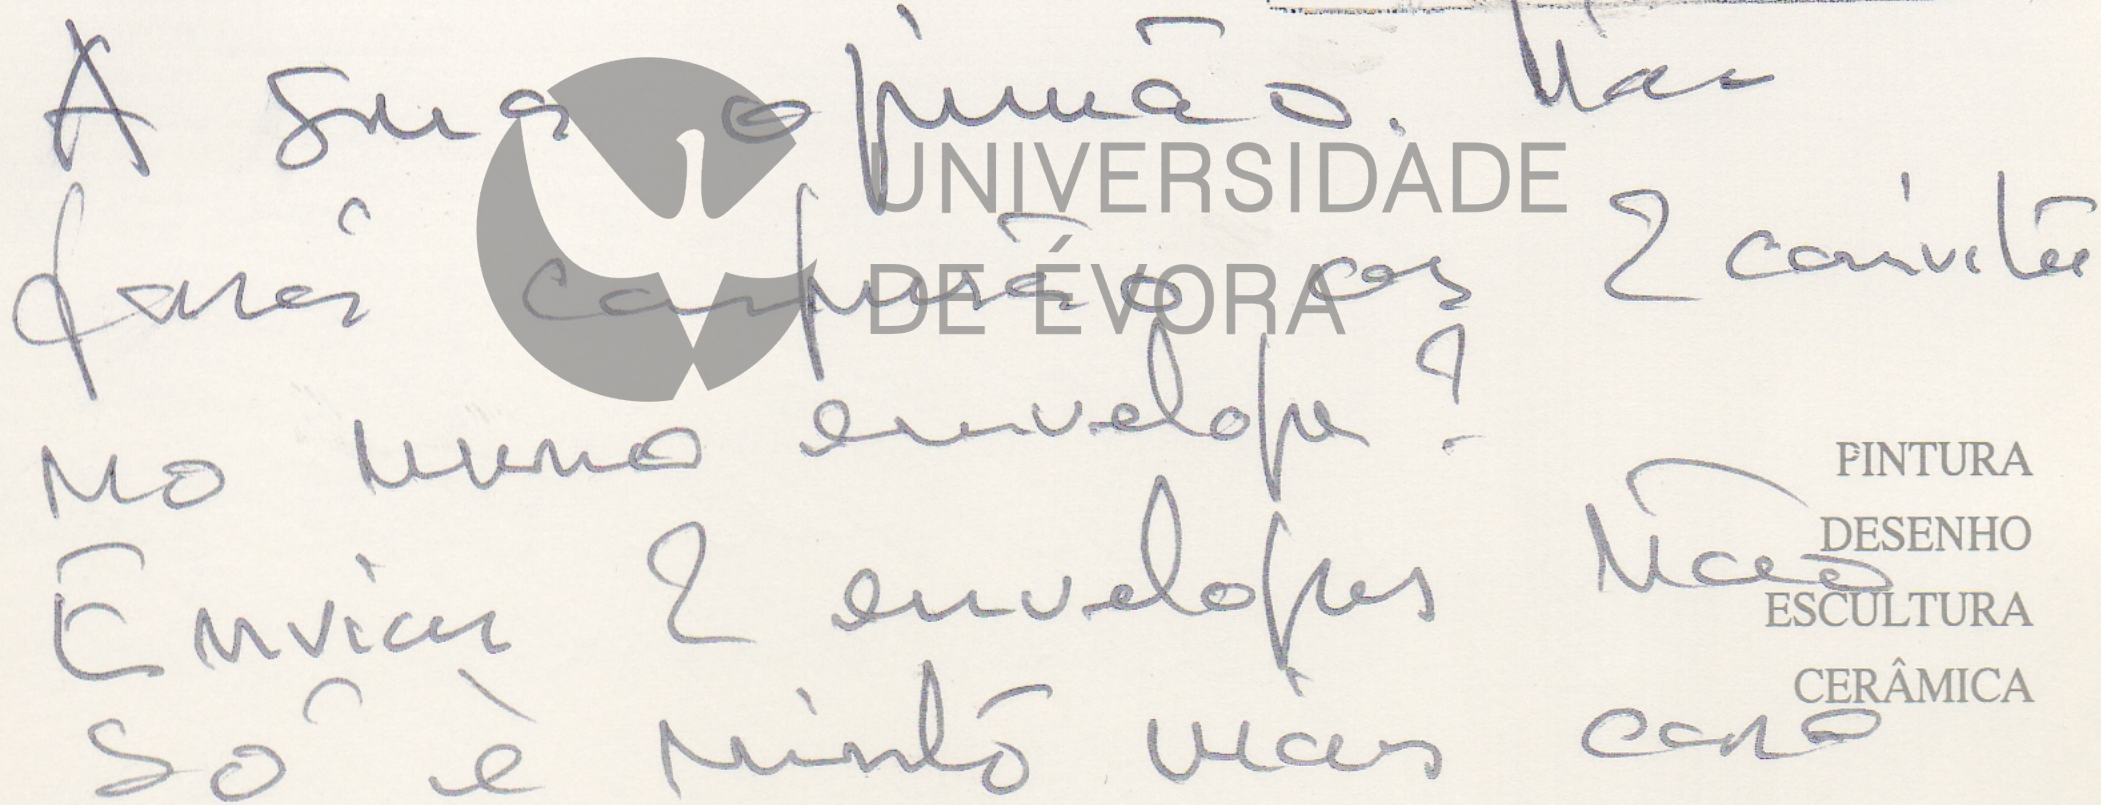 A sua opinião. Não
fará confusão os 2 convites
no mesmo envelope?
Enviar 2 envelopes não
só é muito mais caro
UNIVERSIDADE
DE ÉVORA
PINTURA
DESENHO
ESCULTURA
CERÂMICA